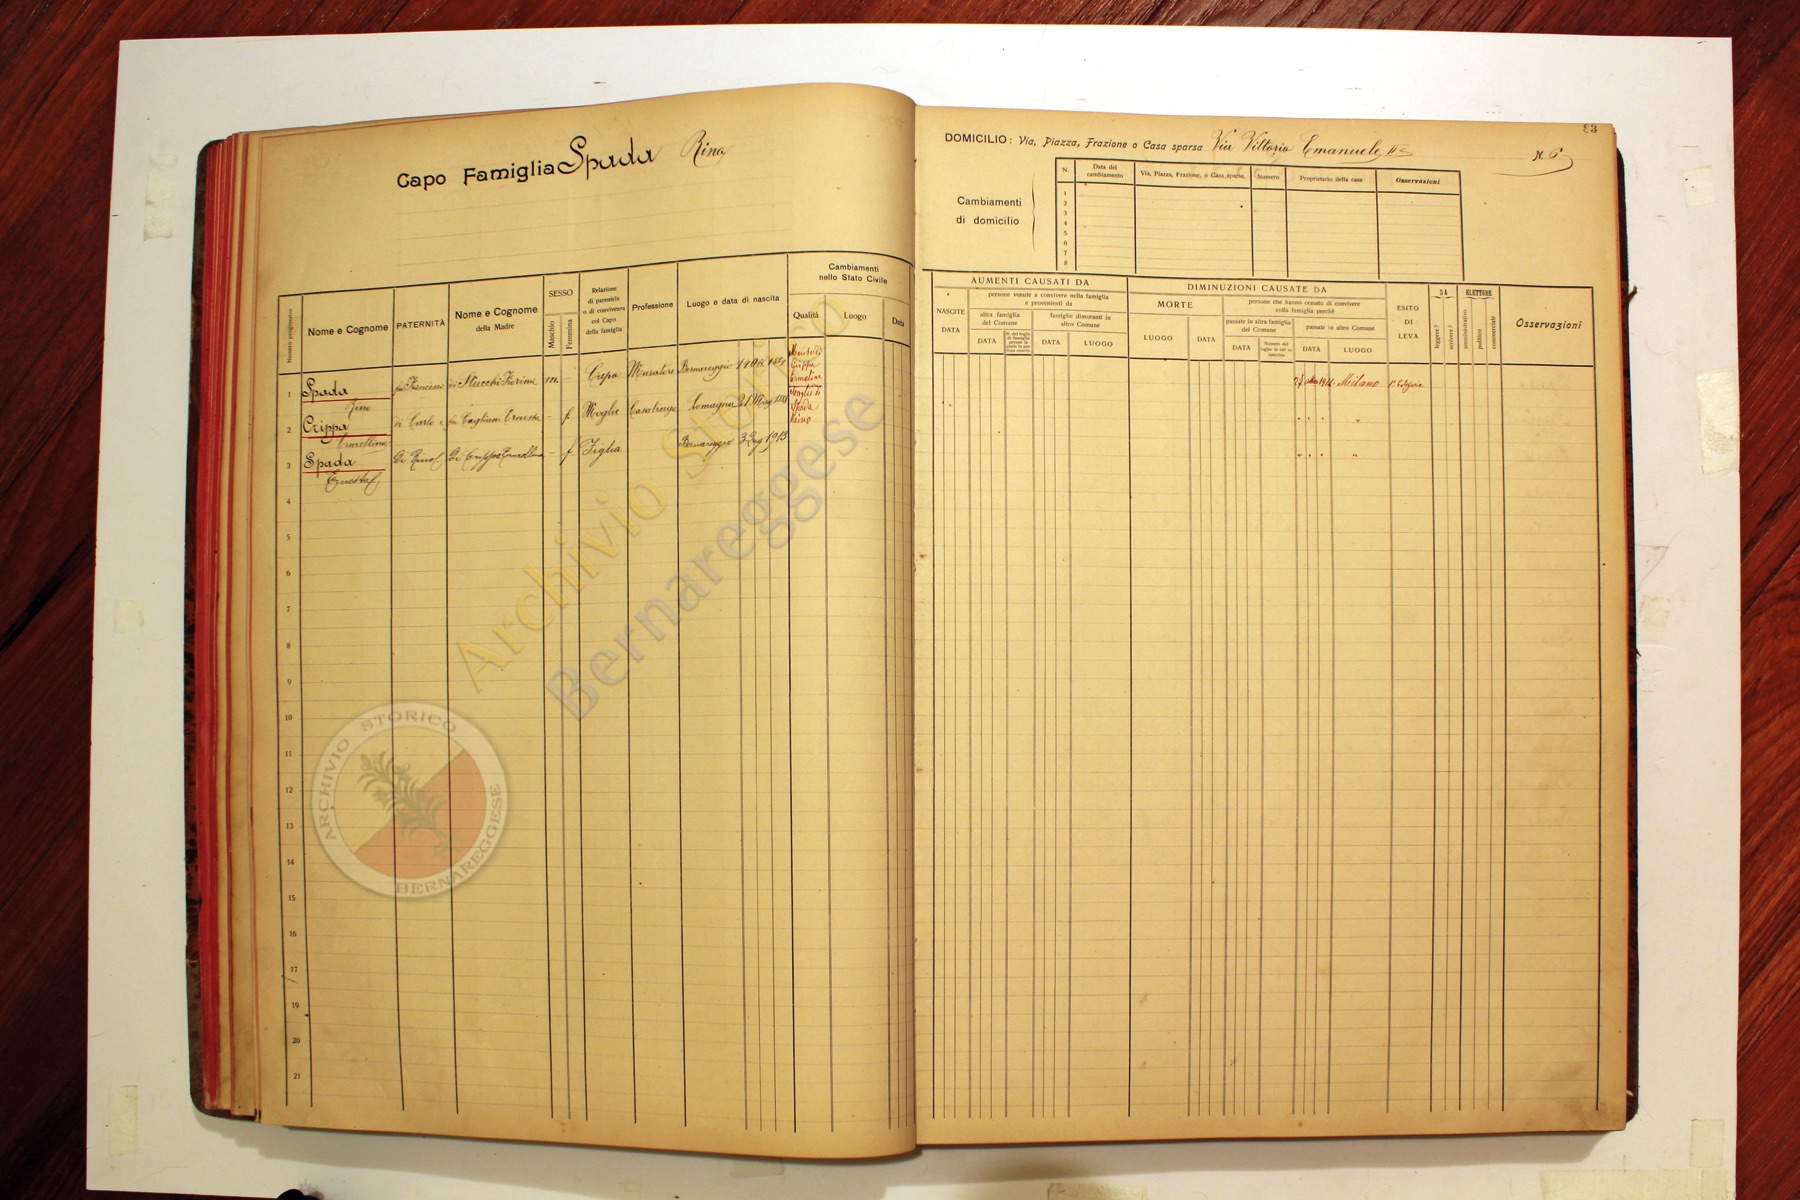 83
Capo Famiglia Spada Rina
DOMICILIO: Via, Piazza, Frazione o Casa sparsa Via Vittorio Emanuele II° N. 6
Cambiamenti
di domicilio
N. Data del cambiamento Via, Piazza, Frazione, o Casa sparsa Numero Proprietario della casa Osservazioni
1
2
3
4
5
6
7
8
Numero progressivo
Nome e Cognome
PATERNITÀ
Nome e Cognome
della Madre
SESSO
Maschio
Femmina
Relazione
di parentela
o di convivenza
col Capo
della famiglia
Professione
Luogo e data di nascita
Cambiamenti
nello Stato Civile
Qualità Luogo Data
AUMENTI CAUSATI DA
NASCITE
DATA
persone venute a convivere nella famiglia
e provenienti da
altra famiglia
del Comune
DATA
famiglie dimoranti in
altro Comune
DATA LUOGO
DIMINUZIONI CAUSATE DA
MORTE
LUOGO DATA
persone che hanno cessato di convivere
colla famiglia perchè
passate in altra famiglia
del Comune
DATA
passate in altro Comune
DATA LUOGO
ESITO
DI
LEVA
SA
leggere?
scrivere?
ELETTORE
amministrativo
politico
commerciale
Osservazioni
1 Spada Rino fu Francesco di Stucchi Fiorina m. - Capo Muratore Bernareggio
Marito di
Crippa
Ermelina
Milano 1a Categoria
2 Crippa Ermellina di Carlo Ernesta - f. Moglie Casalinga Lomagna
Moglie di
Spada
Rino
3 Spada Ernesta Di Rino Di Crippa Ermellina - f Figlia Bernareggio 3 1913
4
5
6
7
8
9
10
11
12
13
14
15
16
17
19
20
21
Archivio Storico
Bernareggese
ARCHIVIO STORICO
BERNAREGGESE